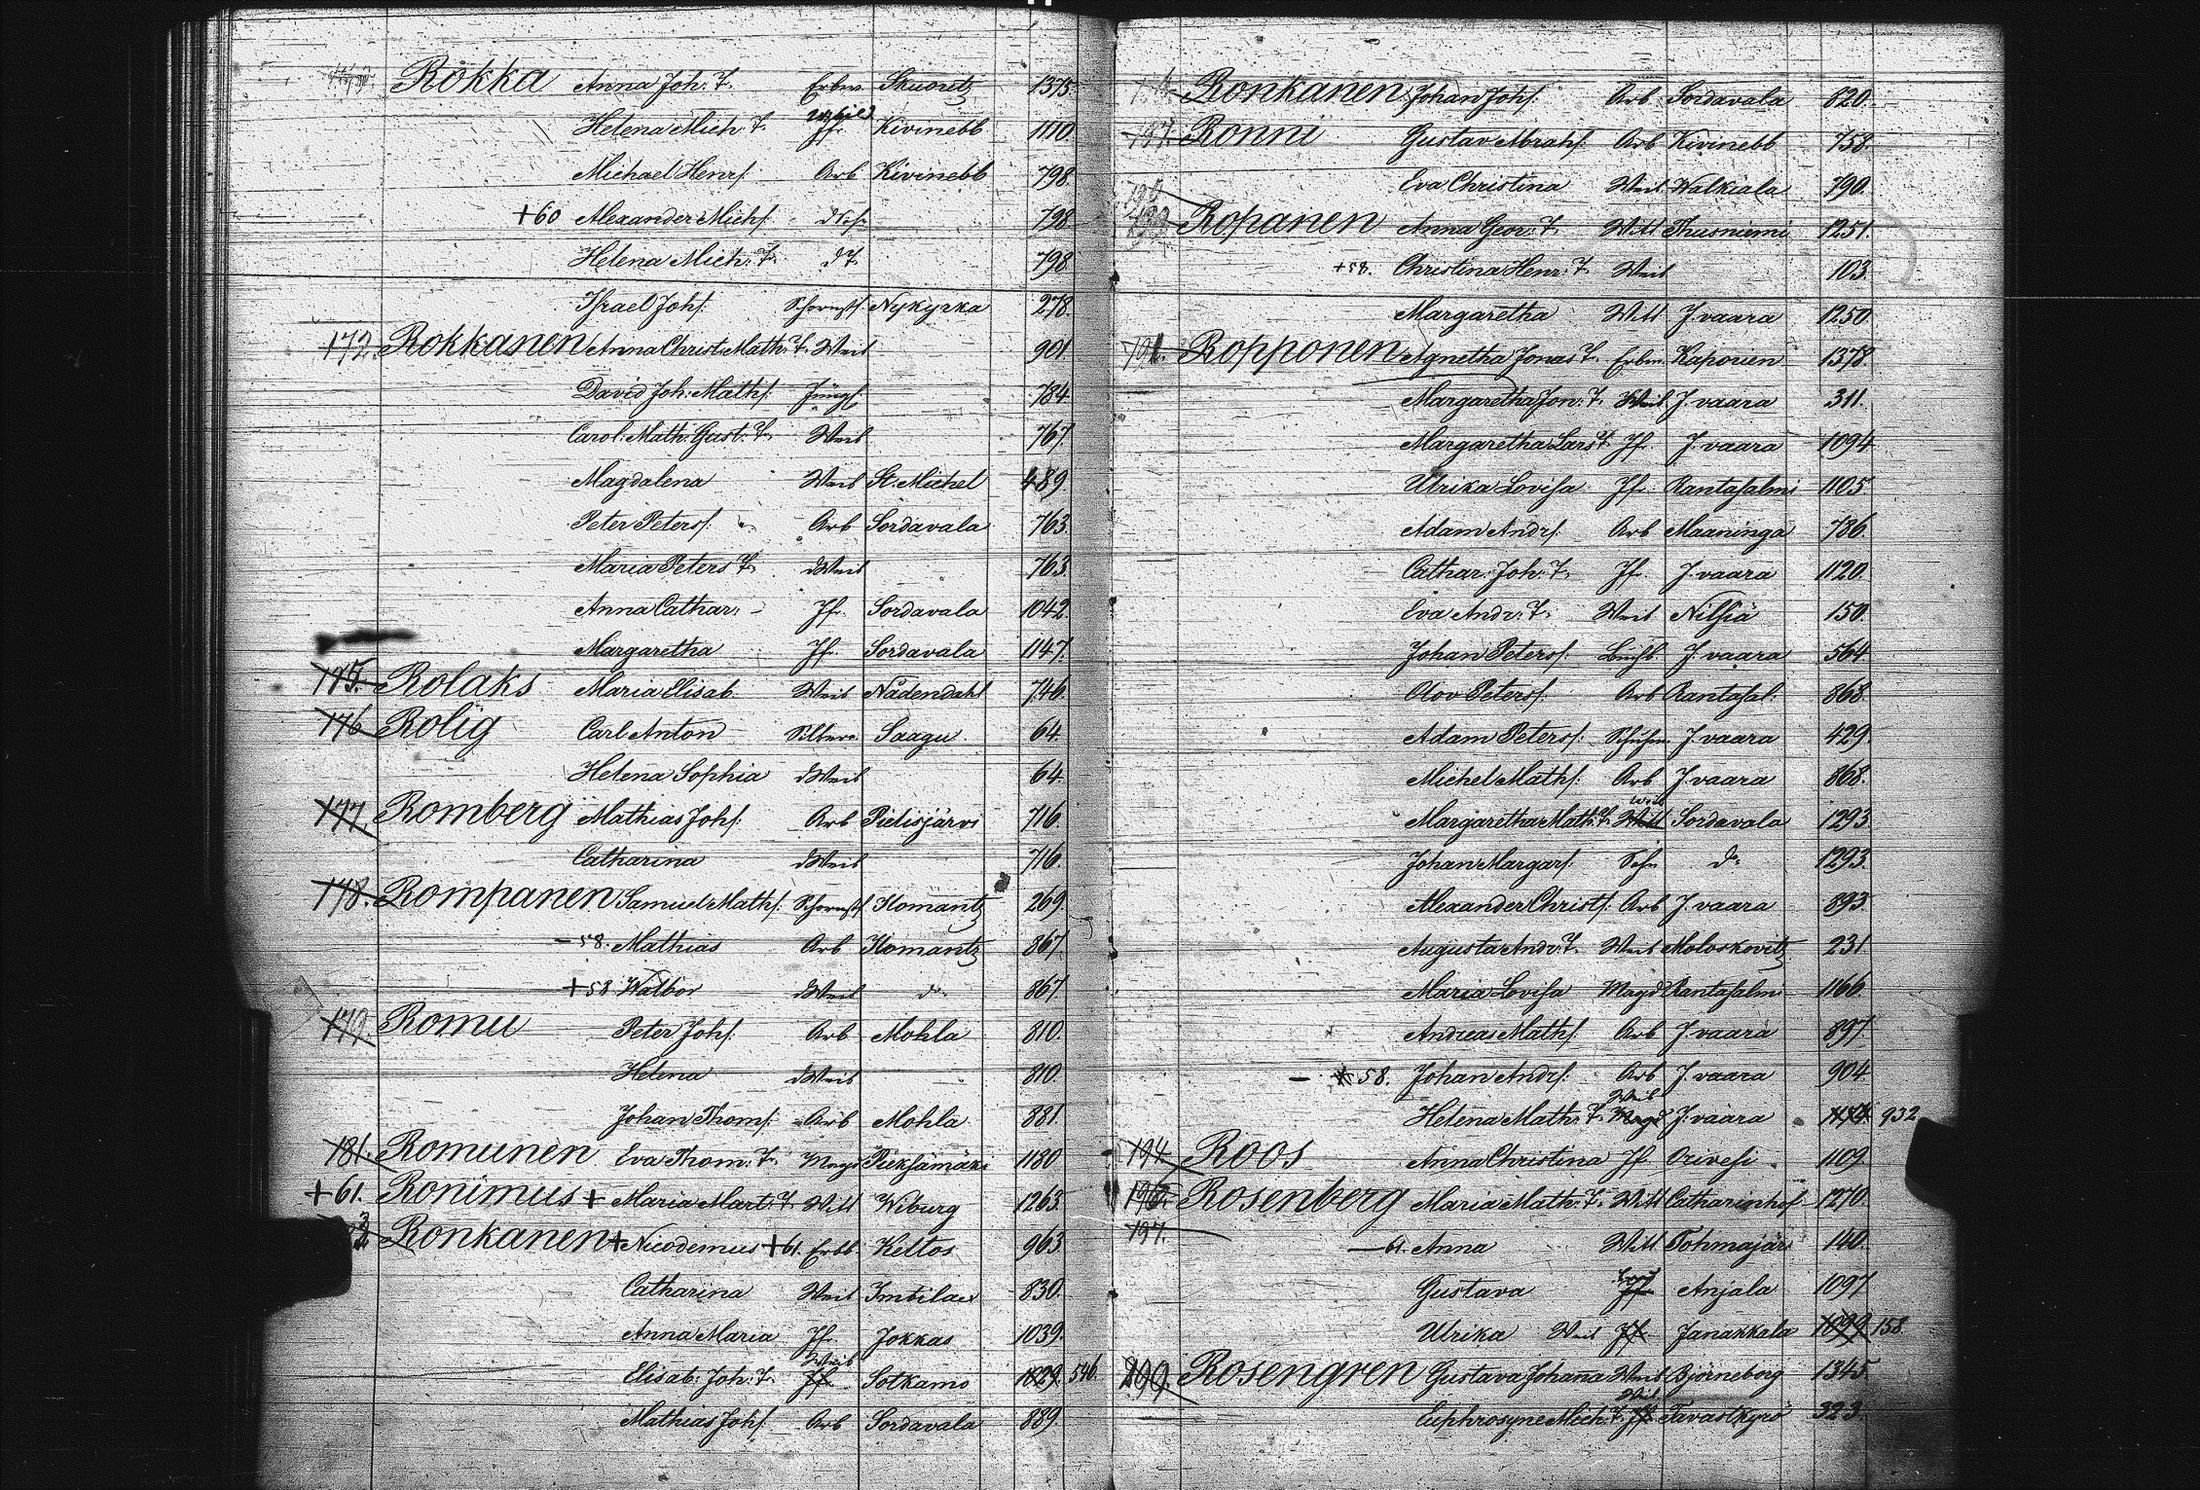 Rokka Anna Joh: T. Erbw. Skuoritz 1375
Helena Mich: T. Jfr. Kivinebb 1110
Michael Henrs. Arb Kivinebb 798.
+60 Alexander Michs. ds. 798
Helena Mich: T. d T. 798
Israel Johs. Schornstf Nykyrka 278.
172. Rokkanen Anna Christ. Math: T. Weib 901.
David Joh: Maths. Jüngl. 784
Carol. Math. Gust: T. Weib 767
Magdalena Weib St. Michel 489
Peter Peters. Arb Sordavala 763.
Maria Peters T. d Weib 763
Anna Cathar: Jfr. Sordavala 1042.
Margaretha Jfr. Sordavala 1147.
175. Rolaks Maria Elisab. Weib Nådendahl 746.
176 Rolig Carl Anton Silberar. Saagu 64.
Helena Sophia d Weib 64.
177. Romberg Mathias Johs. Arb Pielisjärvi 716.
Catharina d Weib 716.
178. Rompanen Samuel Maths. Schornstf Ilomantz 269.
- 58. Mathias Arb Ilomantz 867.
+58 Walbor d Weib do 867
179. Romu Peter Johs. Arb Mohla 810.
Helena d Weib 810.
Johan Thoms. Arb Mohla 881.
181. Romunen Eva Thom: T. Magd Pieksämäki 1180
+61. Ronimus + Maria Mart: T. Witt Wiburg 1263.
Ronkanen + Nicodemus +61. Erbb. Keltos 963
Catharina Weib Imbilax 830.
Anna Maria Jfr. Jokkas 1039
Weib
Elisab: Joh: T. Jfr. Sotkamo 1029. 546.
Mathias Johs. Arb Sordavala 889.
Ronkanen Johan Johs. Arb Sordavala 820.
187. Ronni Gustav Abrahs. Arb Kivinebb 758.
Eva Christina Weib Walkiala 790.
190
Ropanen Anna Geor: T. Witt Thusniemi 1251.
+58. Christina Henr: T. Weib 103.
Margaretha Witt J. vaara 1250
191. Ropponen Agnetha Jonas T. Erbw. Kaporien 1378.
Margaretha Jon: T. Weib J. vaara 311.
Margaretha Lars T. Jfr. J. vaara 1094
Ulrika Lovisa Jfr. Rantasalmi 1105
Adam Andrs. Arb Maaninga 786.
Cathar: Joh: T. Jfr. J. vaara 1120.
Eva Andr: T. Weib Nilsiä 150.
Johan Peters. Buchb. J. vaara 564.
Olov Peters. Arb Rantasal. 868.
Adam Peters. Schuhm. J. vaara 429.
Michel Maths. Arb J. vaara 868.
Weib
Margaretha Math: T. Witt Sordavala 1293
Johan Margars. Sohn do 1293.
Alexander Christs. Arb J. vaara 893
Augusta Andr: T. Weib Moloskovitz 231
Maria Lovisa Magd Rantasalmi 1166.
Andreas Maths. Arb J. vaara 897
- 58. Johan Andrs. Arb J. vaara 904.
Weib
Helena Math: T. Magd J. vaara 932
194. Roos Anna Christina Jfr. Orivesi 1109.
196. Rosenberg Maria Math: T. Witt Catharinhof 1270.
197. - 61. Anna Witt Tohmajärvi 140.
Gustava Jfr. Anjala 1097
Ulrika Weib Jfr. Janakkala 1099 158
200 Rosengren Gustava Johana Weib Björneborg 1345.
Weib
Euphrosyne Mich: T. Jfr. Tavastkyrö 323.